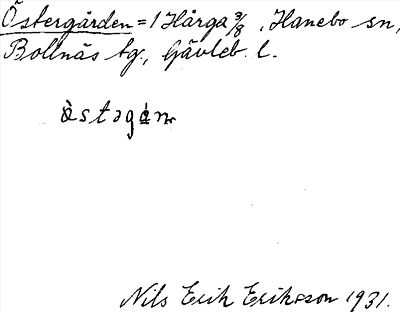 Östergården = 1 Hårga 3/8, Hanebo sn,
Bollnäs tg., Gävleb. l.
Nils Erik Eriksson 1931.